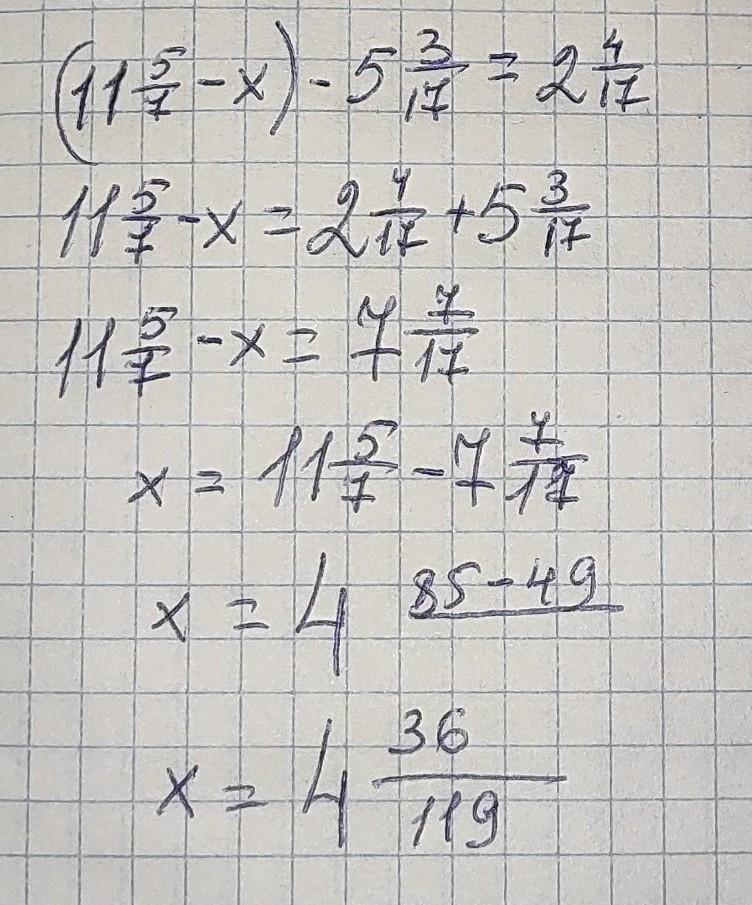 (11 5/7 - x) - 5 3/17 = 2 4/17
11 5/7 - x = 2 4/17 + 5 3/17
11 5/7 - x = 7 7/17
x = 11 5/7 - 7 7/17
x = 4 85-49
x = 4 36/119